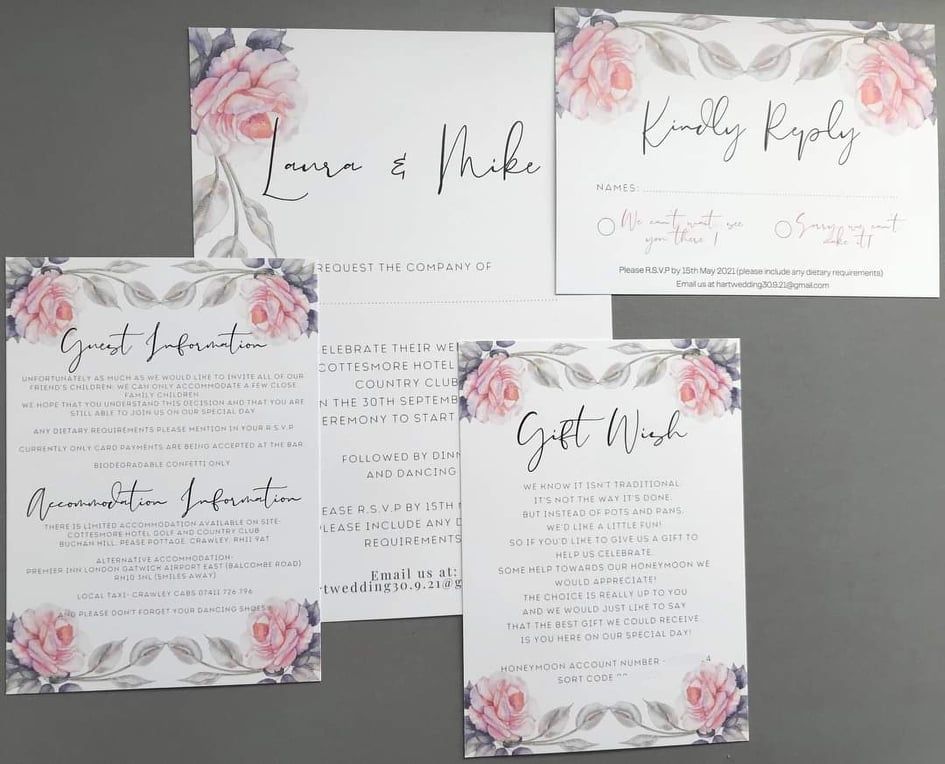 Laura & Mike
REQUEST THE COMPANY OF
CELEBRATE THEIR WE
COTTESMORE HOTEL
COUNTRY CLUB
N THE 30TH SEPTEMB
EREMONY TO START
FOLLOWED BY DINN
AND DANCING
EASE R.S.V.P BY 15TH
PLEASE INCLUDE ANY D
REQUIREMENTS
Email us at:
rtwedding30.9.21@g
Kindly Reply
NAMES:
We can't wait see
you there !
Sorry, we can't
make it!
Please R.S.V.P by 15th May 2021 (please include any dietary requirements)
Email us at hartwedding30.9.21@gmail.com
Guest Information
UNFORTUNATELY AS MUCH AS WE WOULD LIKE TO INVITE ALL OF OUR
FRIEND'S CHILDREN. WE CAN ONLY ACCOMMODATE A FEW CLOSE
FAMILY CHILDREN.
WE HOPE THAT YOU UNDERSTAND THIS DECISION AND THAT YOU ARE
STILL ABLE TO JOIN US ON OUR SPECIAL DAY
ANY DIETARY REQUIREMENTS PLEASE MENTION IN YOUR R.S.V.P
CURRENTLY ONLY CARD PAYMENTS ARE BEING ACCEPTED AT THE BAR.
BIODEGRADABLE CONFETTI ONLY
Accommodation Information
THERE IS LIMITED ACCOMMODATION AVAILABLE ON SITE-
COTTESMORE HOTEL GOLF AND COUNTRY CLUB
BUCHAN HILL, PEASE POTTAGE, CRAWLEY, RH11 9AT
ALTERNATIVE ACCOMMODATION-
PREMIER INN LONDON GATWICK AIRPORT EAST (BALCOMBE ROAD)
RH10 3NL (5MILES AWAY)
LOCAL TAXI- CRAWLEY CABS 07411 726 796
AND PLEASE DON'T FORGET YOUR DANCING SHOES!
Gift Wish
WE KNOW IT ISN'T TRADITIONAL
IT'S NOT THE WAY IT'S DONE.
BUT INSTEAD OF POTS AND PANS,
WE'D LIKE A LITTLE FUN!
SO IF YOU'D LIKE TO GIVE US A GIFT TO
HELP US CELEBRATE.
SOME HELP TOWARDS OUR HONEYMOON WE
WOULD APPRECIATE!
THE CHOICE IS REALLY UP TO YOU
AND WE WOULD JUST LIKE TO SAY
THAT THE BEST GIFT WE COULD RECEIVE
IS YOU HERE ON OUR SPECIAL DAY!
HONEYMOON ACCOUNT NUMBER - 4
SORT CODE